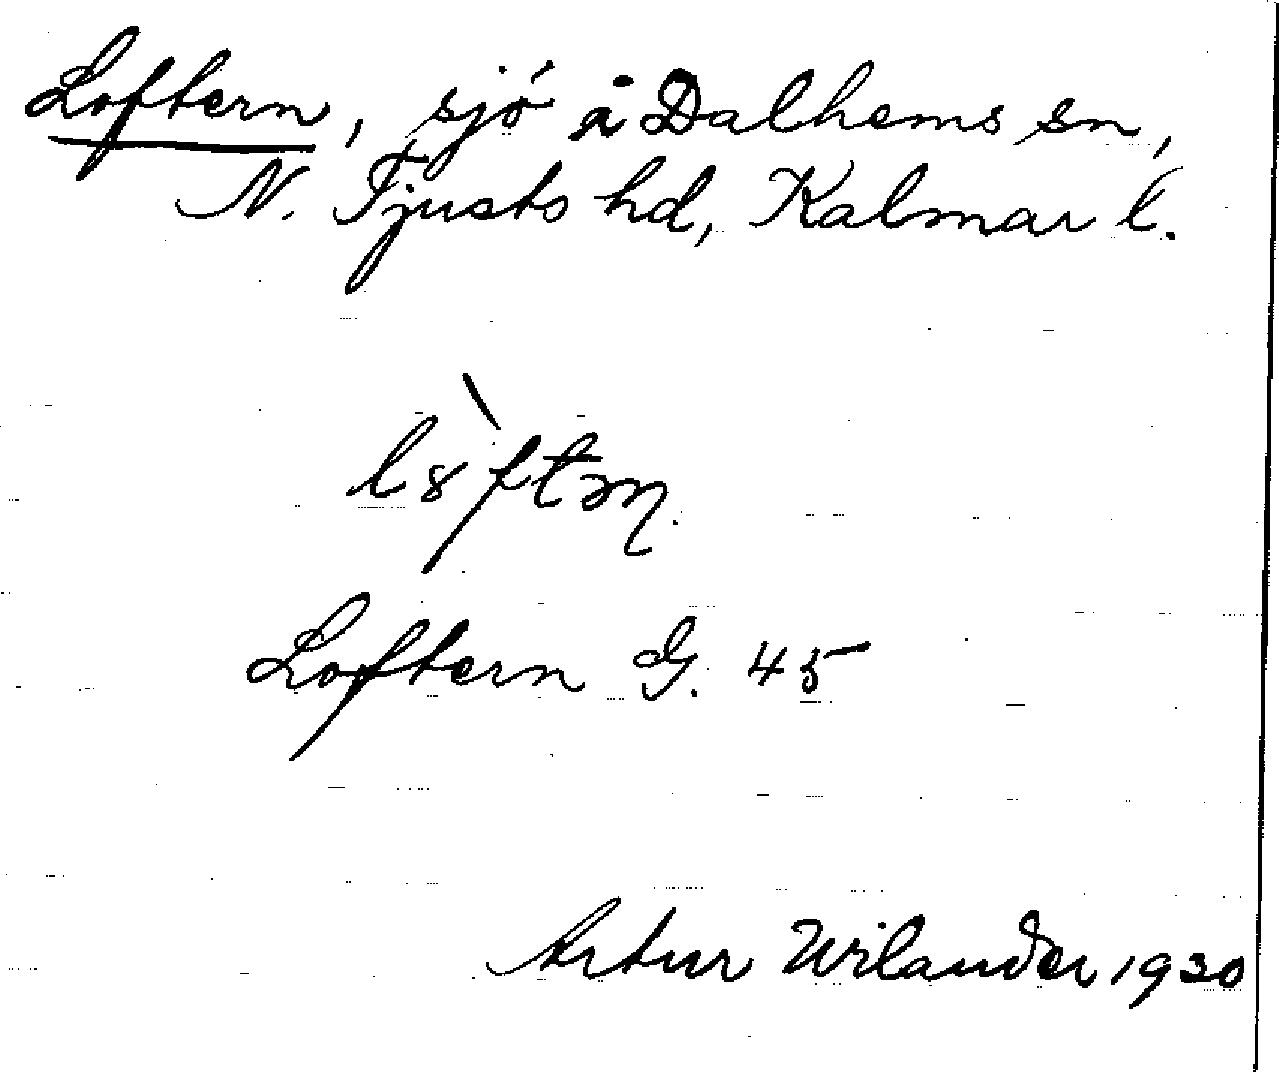 Loftern, sjö å Dalhems sn,
N. Tjusts hd, Kalmar l.
Loftern G. 45
Artur Wilander 1930